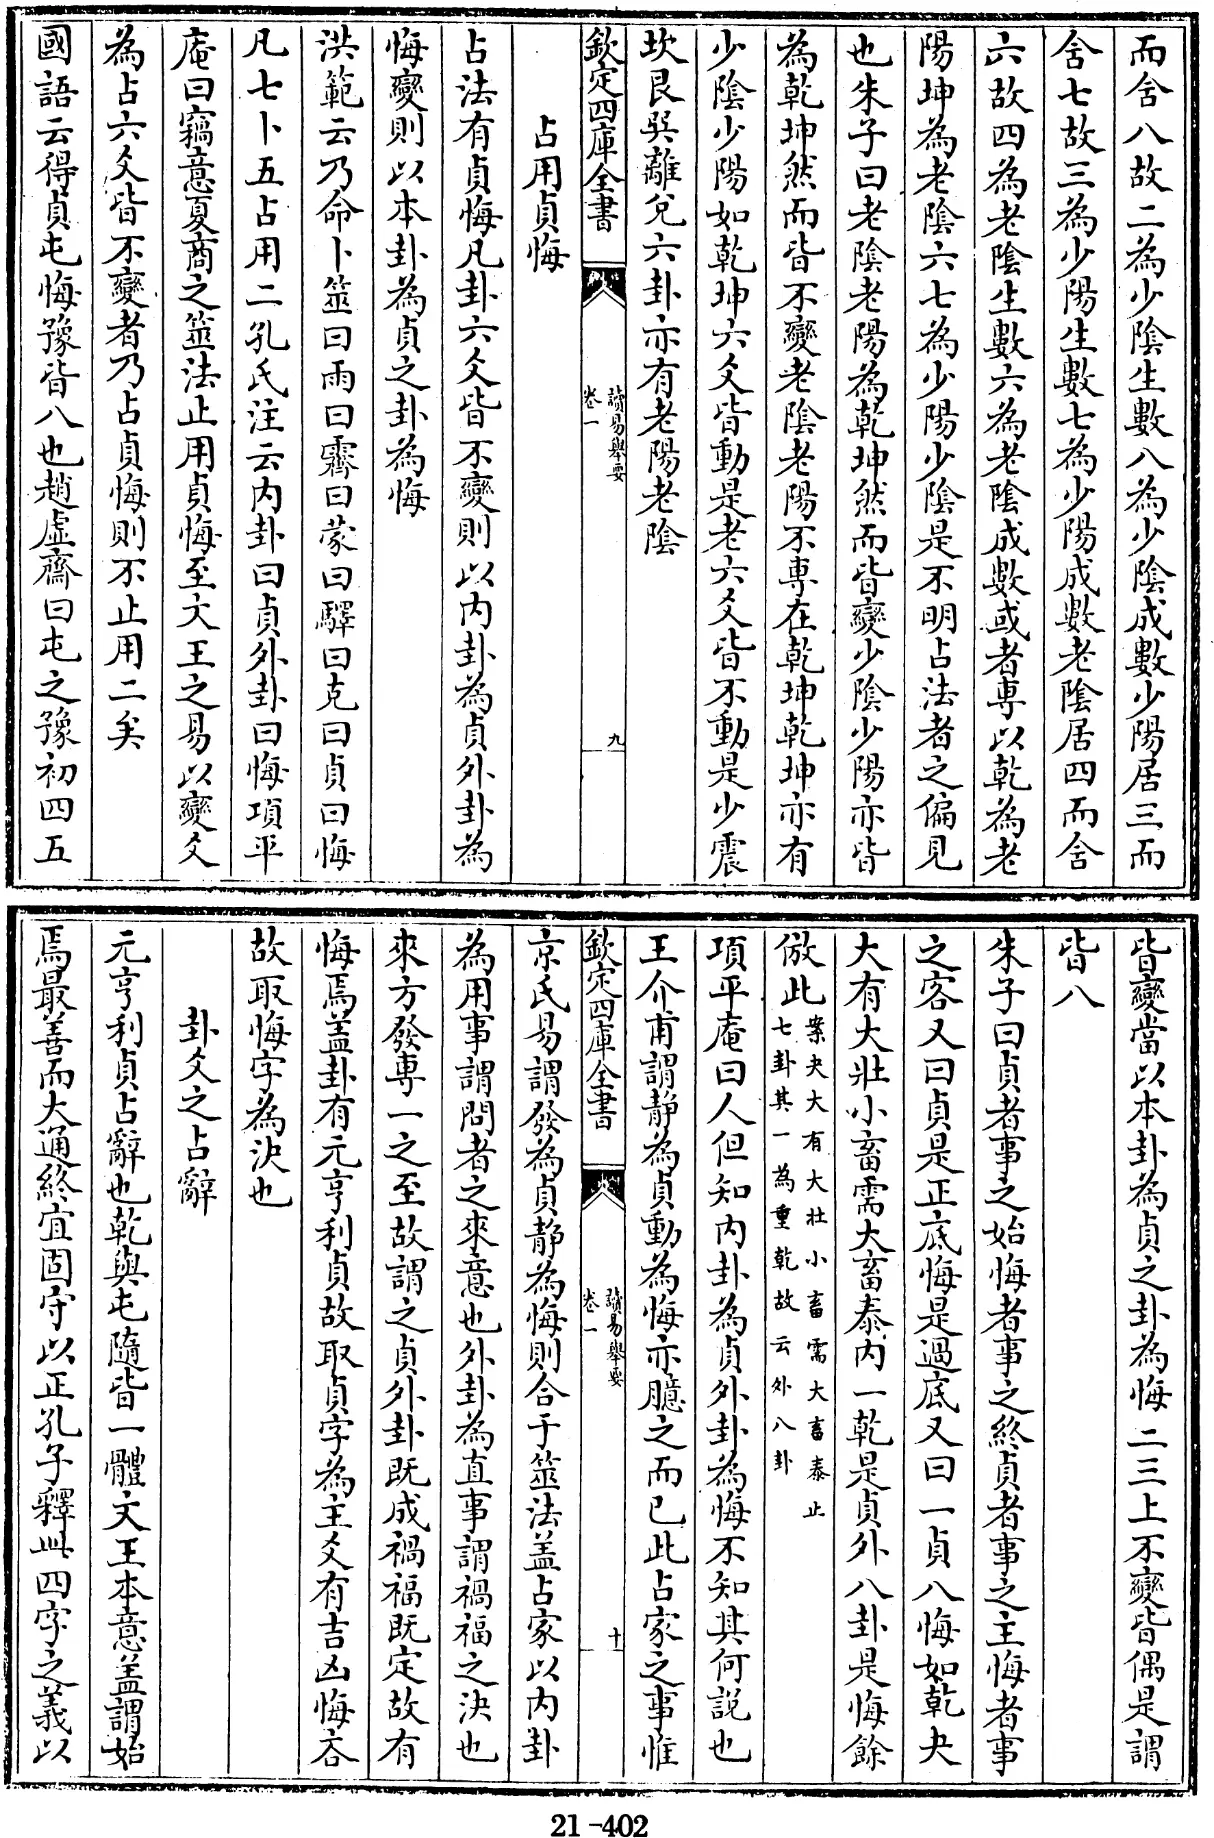 而舍八故二為少陰生數八為少陰成數少陽居三而
舍七故三為少陽生數七為少陽成數老陰居四而舍
六故四為老陰生數六為老陰成數或者專以乾為老
陽坤為老陰六七為少陽少陰是不明占法者之偏見
也朱子曰老陰老陽為乾坤然而皆變少陰少陽亦皆
為乾坤然而皆不變老陰老陽不專在乾坤乾坤亦有
少陰少陽如乾坤六爻皆動是老六爻皆不動是少震
坎艮巽離兌六卦亦有老陽老陰
欽定四庫全書
讀易舉要
卷一
九
占用貞悔
占法有貞悔凡卦六爻皆不變則以内卦為貞外卦為
悔變則以本卦為貞之卦為悔
洪範云乃命卜筮曰雨曰霽曰蒙曰驛曰克曰貞曰悔
凡七卜五占用二孔氏注云内卦曰貞外卦曰悔項平
庵曰竊意夏商之筮法止用貞悔至文王之易以變爻
為占六爻皆不變者乃占貞悔則不止用二矣
國語云得貞屯悔豫皆八也趙虛齋曰屯之豫初四五
皆變當以本卦為貞之卦為悔二三上不變皆偶是謂
皆八
朱子曰貞者事之始悔者事之終貞者事之主悔者事
之客又曰貞是正底悔是過底又曰一貞八悔如乾夬
大有大壯小畜需大畜泰内一乾是貞外八卦是悔餘
倣此
案夬大有大壯小畜需大畜泰止
七卦其一為重乾故云外八卦
項平庵曰人但知内卦為貞外卦為悔不知其何說也
王介甫謂靜為貞動為悔亦臆之而已此占家之事惟
欽定四庫全書
讀易舉要
卷一
十
京氏易謂發為貞靜為悔則合于筮法蓋占家以内卦
為用事謂問者之來意也外卦為直事謂禍福之決也
來方發專一之至故謂之貞外卦既成禍福既定故有
悔焉蓋卦有元亨利貞故取貞字為主爻有吉凶悔吝
故取悔字為決也
卦爻之占辭
元亨利貞占辭也乾與屯隨皆一體文王本意蓋謂始
焉最善而大通終宜固守以正孔子釋此四字之義以
21-402